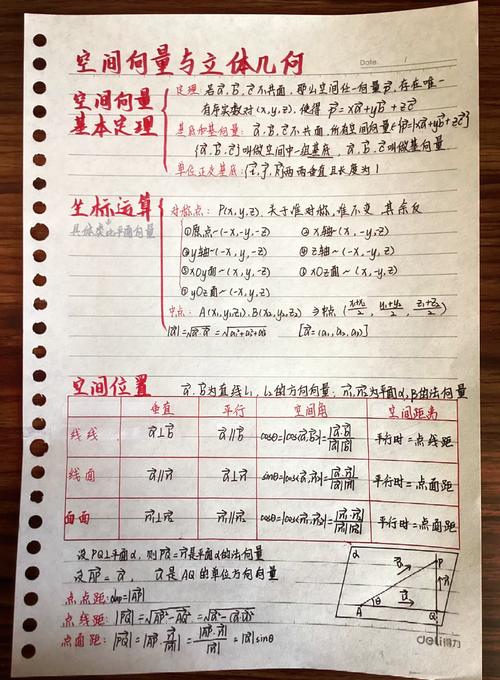 空间向量与立体几何
Date.
空间向量
基本定理
定理：若a⃗,b⃗,c⃗不共面，那么空间任一向量p⃗，存在唯一
有序实数对(x,y,z)，使得 p⃗=xa⃗+yb⃗+zc⃗
基底和基向量：a⃗,b⃗,c⃗不共面，所有空间向量{p⃗|p⃗=xa⃗+yb⃗+zc⃗}
{a⃗,b⃗,c⃗}叫做空间中一组基底，a⃗,b⃗,c⃗叫做基向量
单位正交基底：{i⃗,j⃗,k⃗}两两垂直且长度为1
坐标运算
具体类比平面向量
对称点：P(x,y,z) 关于谁对称，谁不变 其余反
①原点~(-x,-y,-z) ②x轴~(x,-y,-z)
③y轴~(-x,y,-z) ④z轴~(-x,-y,z)
⑤xOy面~(x,y,-z) ⑥xOz面~(x,-y,z)
⑦yOz面~(-x,y,z)
中点：A(x₁,y₁,z₁),B(x₂,y₂,z₂) ⇒中点(x₁+x₂/2, y₁+y₂/2, z₁+z₂/2)
|a⃗|=√a⃗·a⃗=√a₁²+a₂²+a₃² [a⃗=(a₁,a₂,a₃)]
空间位置 a⃗,b⃗为直线l₁,l₂的方向向量；n⃗₁,n⃗₂为平面α,β的法向量
垂直 平行 空间角 空间距离
线线 a⃗⊥b⃗ a⃗∥b⃗ cosθ=|cos⟨a⃗,b⃗⟩|=|a⃗·b⃗|/|a⃗||b⃗| 平行时=点线距
线面 a⃗∥n⃗ a⃗⊥n⃗ sinθ=|cos⟨a⃗,n⃗⟩|=|a⃗·n⃗|/|a⃗||n⃗| 平行时=点面距
面面 n⃗₁⊥n⃗₂ n⃗₁∥n⃗₂ cosθ=|cos⟨n⃗₁,n⃗₂⟩|=|n⃗₁·n⃗₂|/|n⃗₁||n⃗₂| 平行时=点面距
设PQ⊥平面α，则PQ⃗=n⃗是平面α的法向量
设AP⃗=a⃗， u⃗是AQ的单位方向向量
点点距：dAP=|AP⃗|
点线距：|PQ⃗|=√AP⃗²-AQ⃗²=√a⃗²-(a⃗·u⃗)²
点面距：|PQ⃗|=|AP⃗·n⃗/|n⃗||=|AP⃗·n⃗|/|n⃗|=|a⃗|sinθ
α
a⃗
P
n⃗
θ
u⃗
A
Q
deli得力